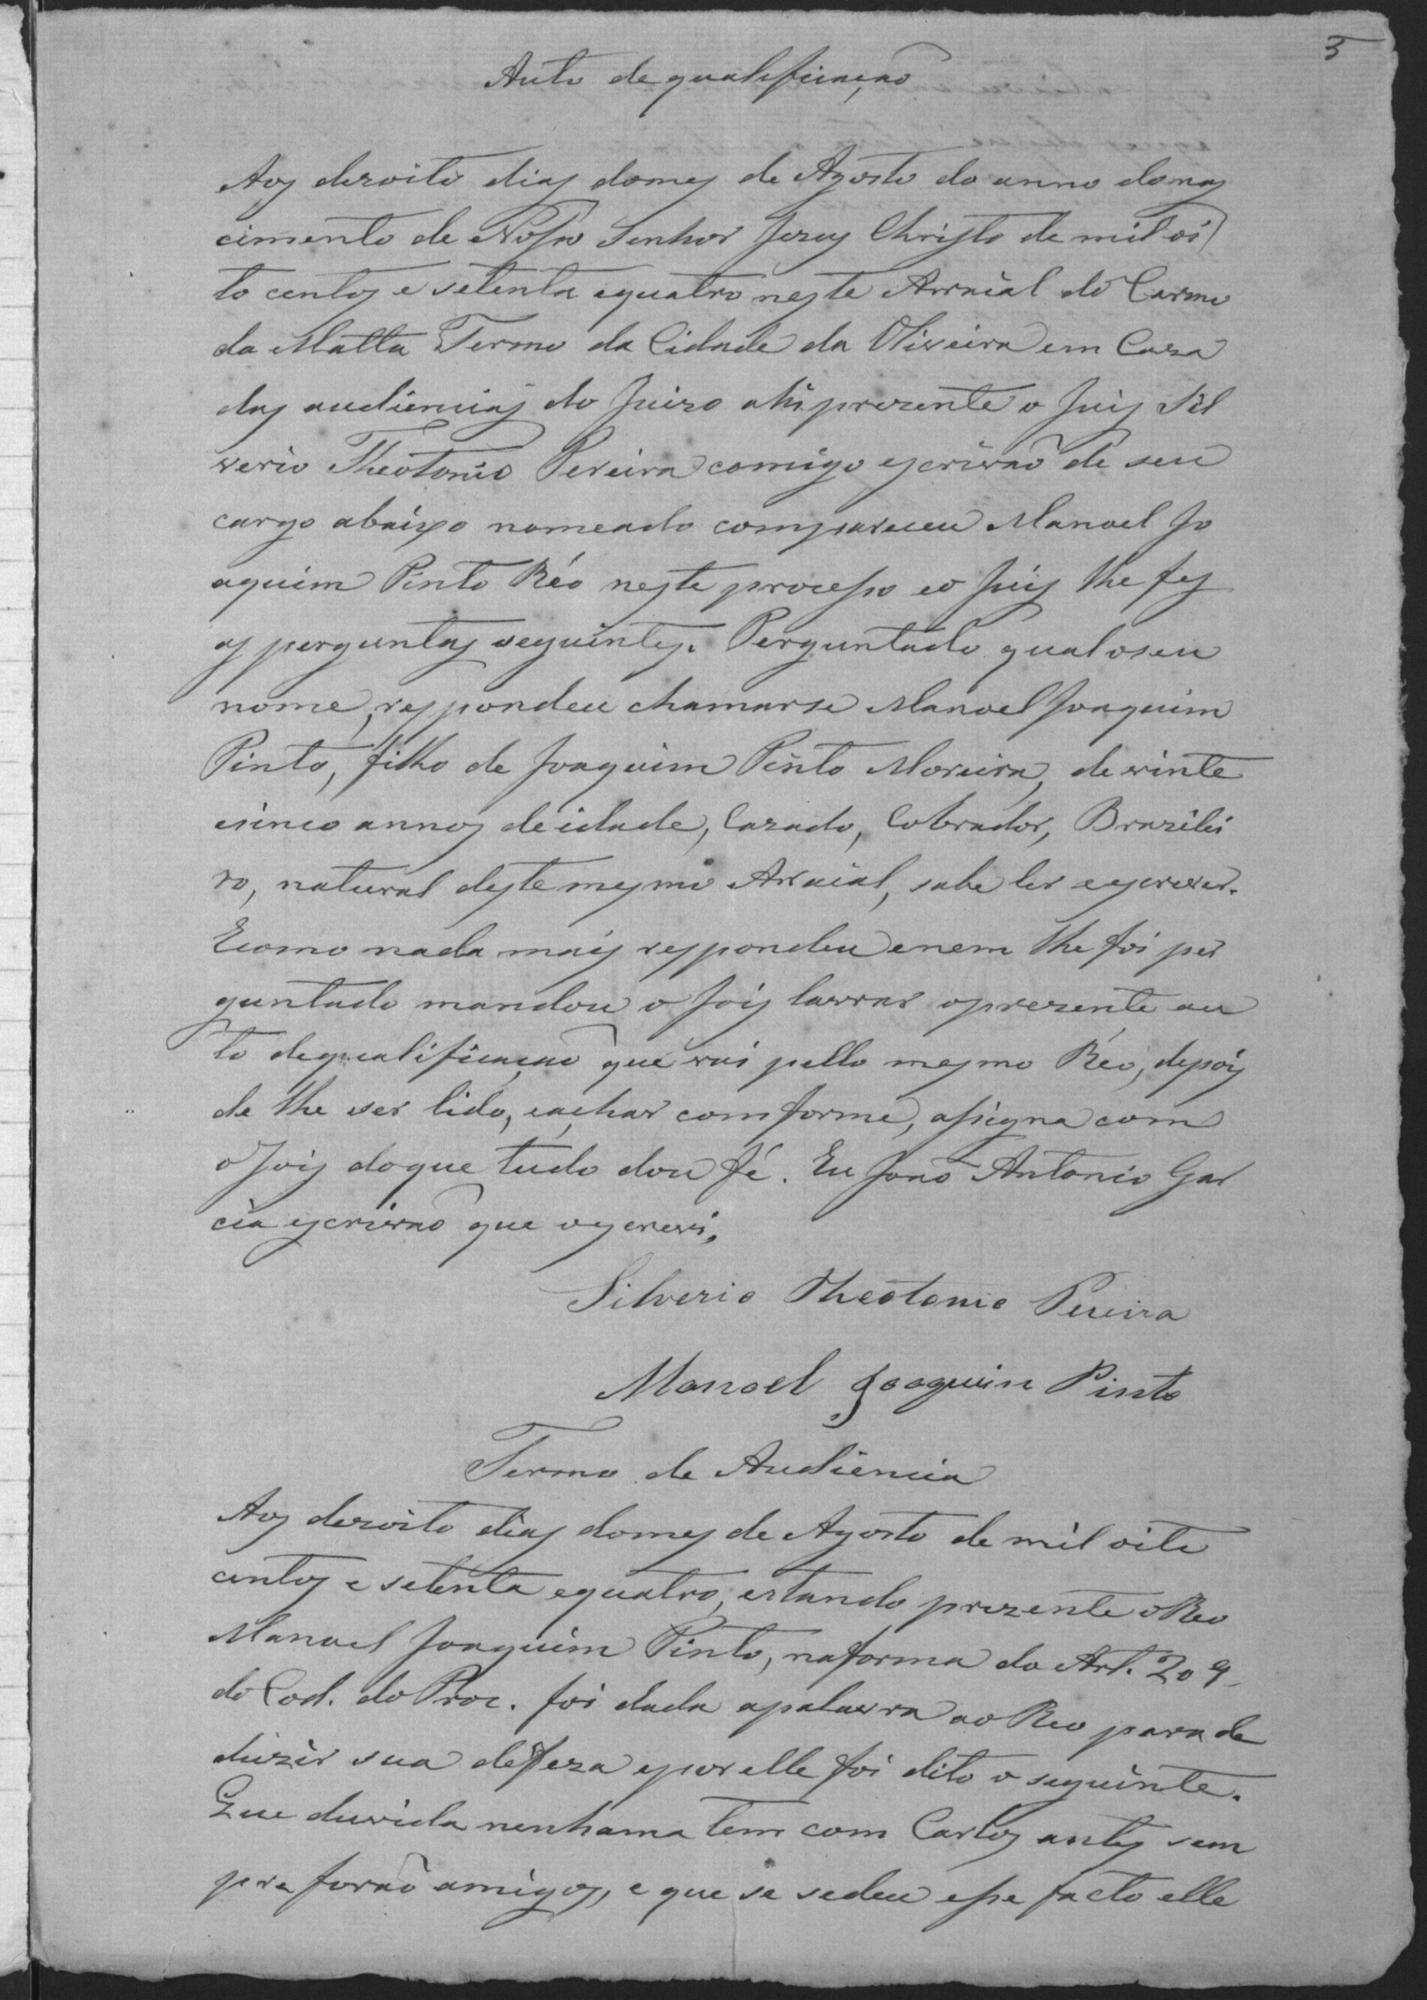 3
Auto de qualificação
Aos dezoito dias do mes de Agosto do anno do nas
cimento de Nosso Senhor Jezus Christo de mil oi
to centos e setenta e quatro neste Arraial do Carmo
da Matta Termo da Cidade da Oliveira em Caza
das audiencias do Juizo ahi prezente o Juiz Sil
verio Theotonio Pereira comigo escrivão de seu
cargo abaixo nomeado compareceu Manoel Jo
aquim Pinto Réo neste processo e o Juiz lhe fez
as perguntas seguintes. Perguntado qual o seu
nome, respondeu chamarse Manoel Joaquim
Pinto, filho de Joaquim Pinto Moreira, de vinte
e sinco annos de idade, Cazado, Cobrador, Brazilei
ro, natural deste mesmo Arraial, sabe ler e escrever.
E como nada mais respondeu e nem lhe foi per
guntado mandou o Joiz lavrar o prezente au
to de qualificação que vai pello mesmo Réo, depois
de lhe ser lido, e achar comforme, assigna com
o Joiz do que tudo dou fé. Eu João Antonio Gar
cia escrivão que o escrevi.
Silverio Theotonio Pereira
Manoel Joaquim Pinto
Termo de Audiencia
Aos dezoito dias do mes de Agosto de mil oito
centos e setenta e quatro, estando prezente o Reo
Manoel Joaquim Pinto, na forma do Art. 209
do Cod. do Proc. foi dada a palavra ao Reo para de
duzir sua defeza e por elle foi dito o seguinte.
Que duvida nenhama tem com Carlos antes sem
pre forão amigos, e que se sedeu esse facto elle